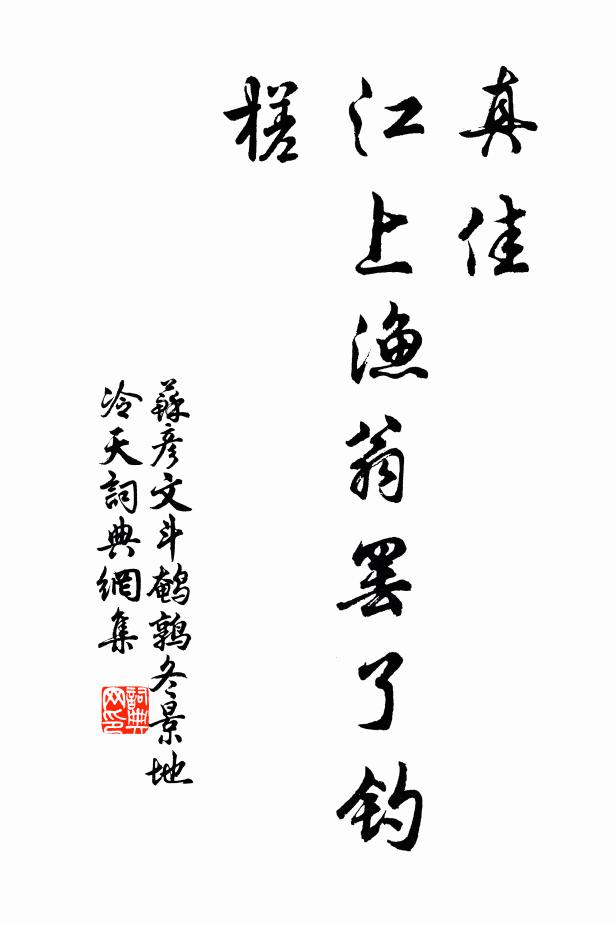 真佳
江上漁翁罷了釣
槎
蘇彥文斗鵪鶉冬景地
冷天詞典網集
詞典网印